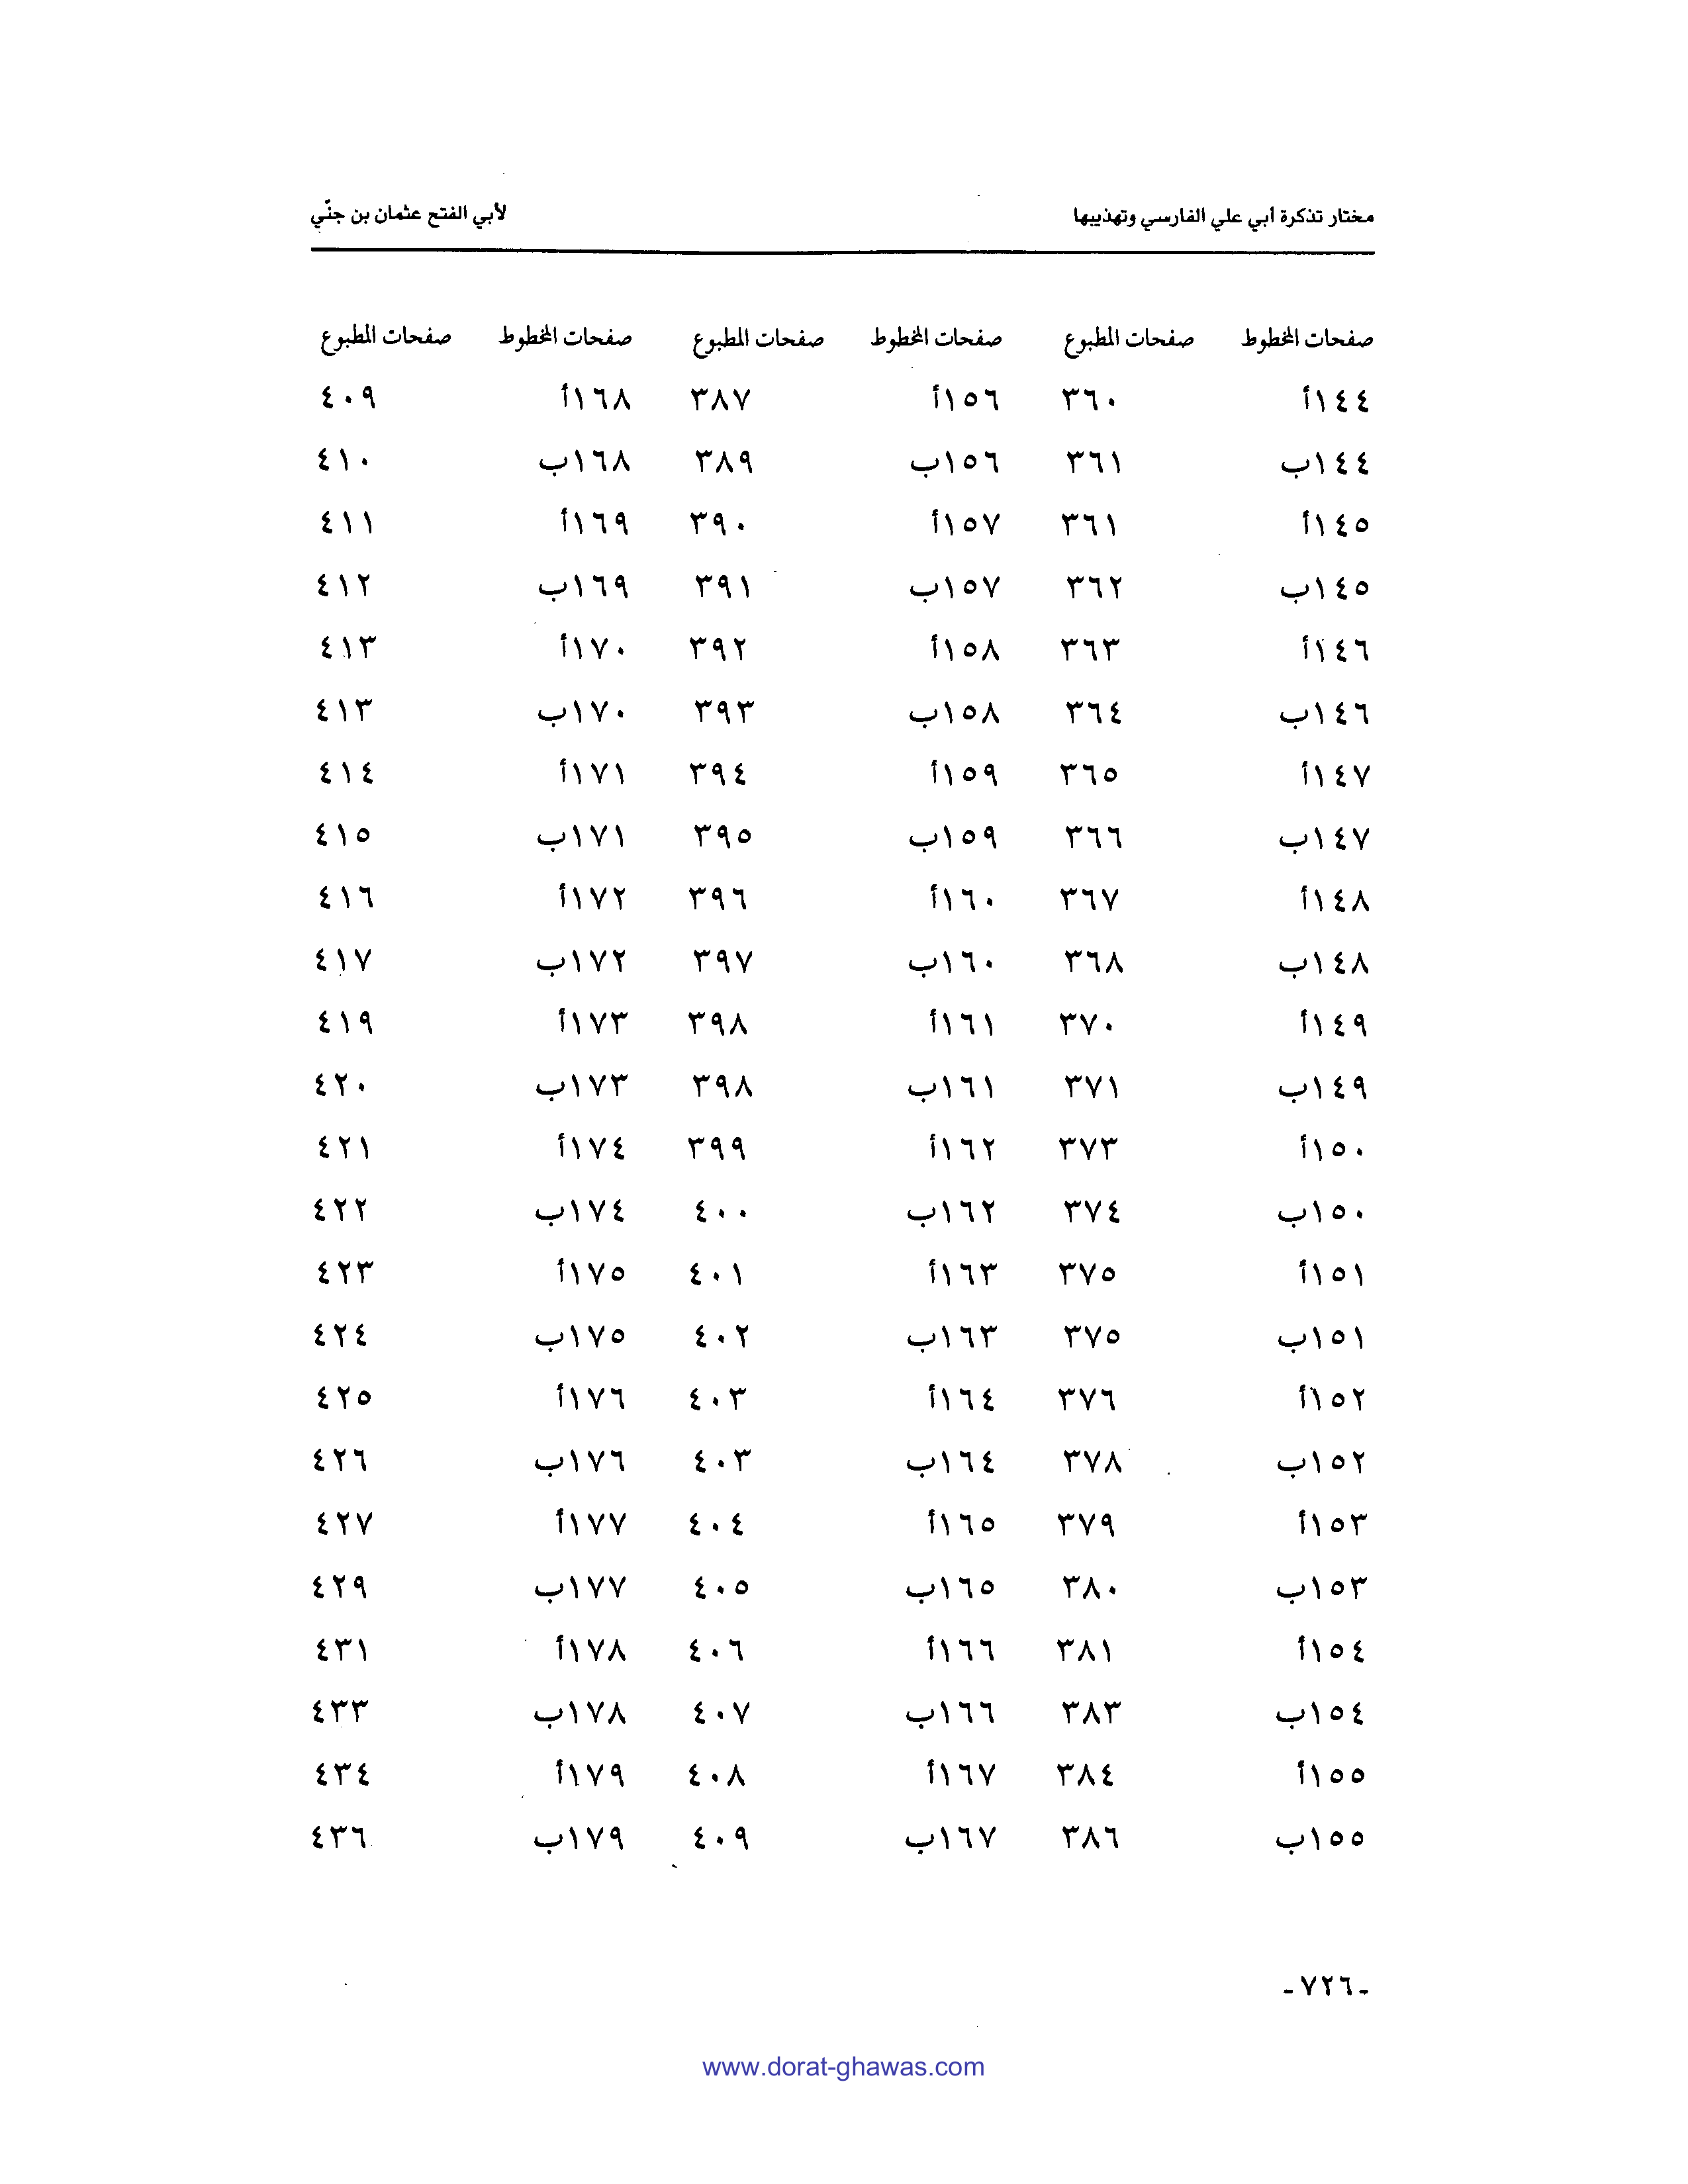 مختار تذكرة أبي علي الفارسي وتهذيبها لأبي الفتح عثمان بن جنّي
صفحات المخطوط صفحات المطبوع صفحات المخطوط صفحات المطبوع صفحات المخطوط صفحات المطبوع
١٤٤أ ٣٦٠ ١٥٦أ ٣٨٧ ١٦٨أ ٤٠٩
١٤٤ب ٣٦١ ١٥٦ب ٣٨٩ ١٦٨ب ٤١٠
١٤٥أ ٣٦١ ١٥٧أ ٣٩٠ ١٦٩أ ٤١١
١٤٥ب ٣٦٢ ١٥٧ب ٣٩١ ١٦٩ب ٤١٢
١٤٦أ ٣٦٣ ١٥٨أ ٣٩٢ ١٧٠أ ٤١٣
١٤٦ب ٣٦٤ ١٥٨ب ٣٩٣ ١٧٠ب ٤١٣
١٤٧أ ٣٦٥ ١٥٩أ ٣٩٤ ١٧١أ ٤١٤
١٤٧ب ٣٦٦ ١٥٩ب ٣٩٥ ١٧١ب ٤١٥
١٤٨أ ٣٦٧ ١٦٠أ ٣٩٦ ١٧٢أ ٤١٦
١٤٨ب ٣٦٨ ١٦٠ب ٣٩٧ ١٧٢ب ٤١٧
١٤٩أ ٣٧٠ ١٦١أ ٣٩٨ ١٧٣أ ٤١٩
١٤٩ب ٣٧١ ١٦١ب ٣٩٨ ١٧٣ب ٤٢٠
١٥٠أ ٣٧٣ ١٦٢أ ٣٩٩ ١٧٤أ ٤٢١
١٥٠ب ٣٧٤ ١٦٢ب ٤٠٠ ١٧٤ب ٤٢٢
١٥١أ ٣٧٥ ١٦٣أ ٤٠١ ١٧٥أ ٤٢٣
١٥١ب ٣٧٥ ١٦٣ب ٤٠٢ ١٧٥ب ٤٢٤
١٥٢أ ٣٧٦ ١٦٤أ ٤٠٣ ١٧٦أ ٤٢٥
١٥٢ب ٣٧٨ ١٦٤ب ٤٠٣ ١٧٦ب ٤٢٦
١٥٣أ ٣٧٩ ١٦٥أ ٤٠٤ ١٧٧أ ٤٢٧
١٥٣ب ٣٨٠ ١٦٥ب ٤٠٥ ١٧٧ب ٤٢٩
١٥٤أ ٣٨١ ١٦٦أ ٤٠٦ ١٧٨أ ٤٣١
١٥٤ب ٣٨٣ ١٦٦ب ٤٠٧ ١٧٨ب ٤٣٣
١٥٥أ ٣٨٤ ١٦٧أ ٤٠٨ ١٧٩أ ٤٣٤
١٥٥ب ٣٨٦ ١٦٧ب ٤٠٩ ١٧٩ب ٤٣٦
-٧٢٦-
www.dorat-ghawas.com